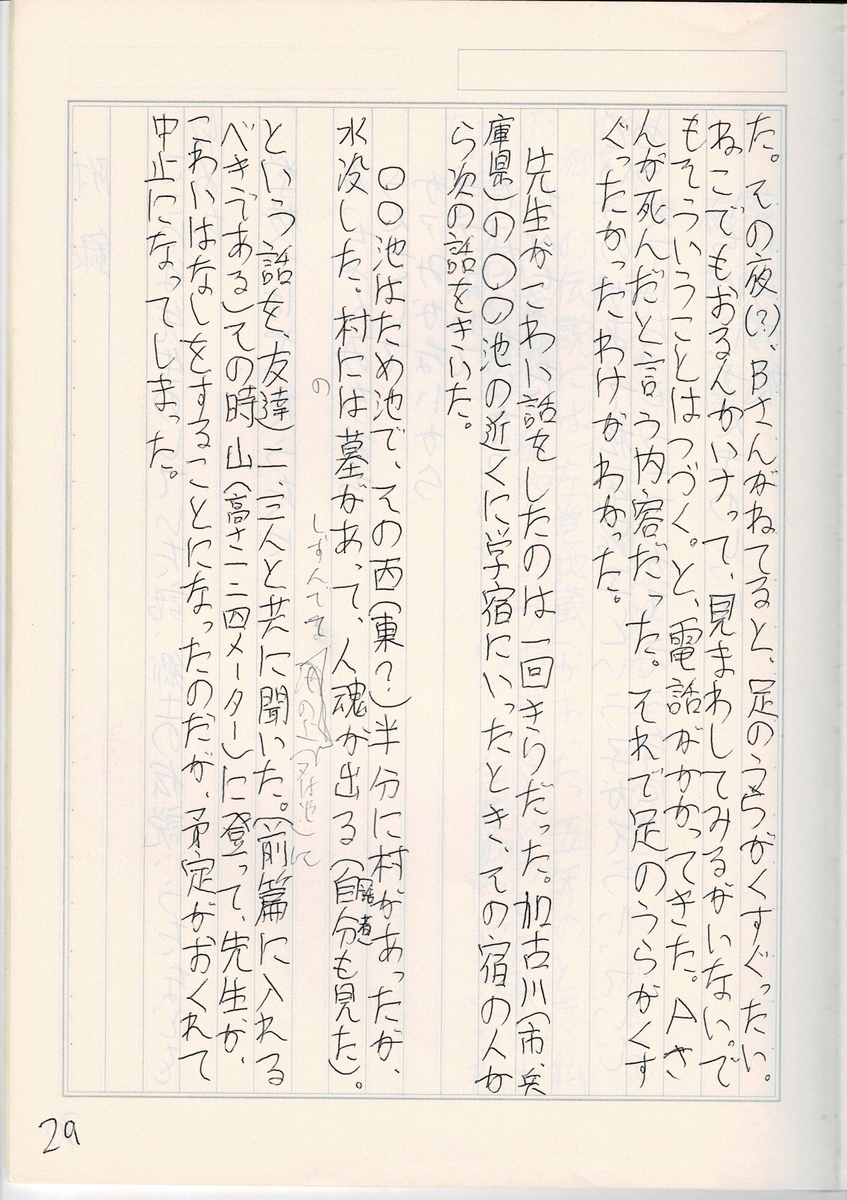 た。その夜(?)、Bさんがねてると、足のうらがくすぐったい。
ねこでもおるんかいナって、見まわしてみるがいない。で
もそういうことはつづく。と、電話がかかってきた。Aさ
んが死んだと言う内容だった。それで足のうらがくす
ぐったかったわけがわかった。
先生がこわい話をしたのは一回きりだった。加古川(市、兵
庫県)の〇〇池の近くに学宿にいったとき、その宿の人か
ら次の話をきいた。
〇〇池はため池で、その西(東?)半分に村があったが、
水没した。村には墓があって、人魂が出る(自分も見た)。
話者
の
しずんでる
又は池)に
という話を、友達二、三人と共に聞いた。(前篇に入れる
べきである)その時山(高さ一二四メーター)に登って、先生が、
こわいはなしをすることになったのだが、予定がおくれて
中止になってしまった。
29